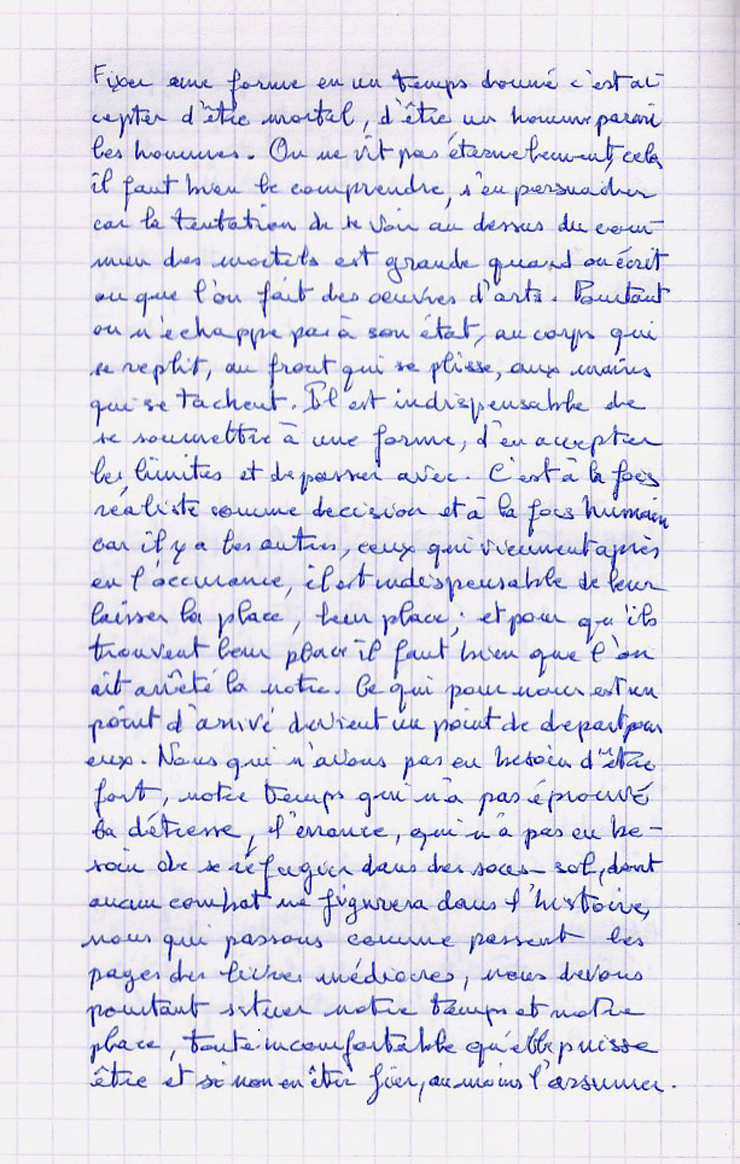 Fixer une forme en un temps donné c'est ac-
cepter d'être mortel, d'être un homme parmi
les hommes. On ne vit pas éternellement, cela
il faut bien le comprendre, s'en persuader
car la tentation de se voir au dessus du com-
mun des mortels est grande quand on écrit
ou que l'on fait des oeuvres d'arts. Pourtant
on n'échappe pas à son état, au corps qui
se replit, au front qui se plisse, aux mains
qui se tachent. Il est indispensable de
se soumettre à une forme, d'en accepter
les limites et de passer avec. C'est à la fois
réaliste comme decision et à la fois humain
car il y a les autres, ceux qui viennent après
en l'occurance, il est indispensable de leur
laisser la place, leur place ; et pour qu'ils
trouvent leur place il faut bien que l'on
ait arrêté la notre. Ce qui pour nous est un
point d'arrivé devient un point de depart pour
eux. Nous qui n'avons pas eu besoin d'être
fort, notre temps qui n'a pas éprouvé
la détresse, l'errance, qui n'a pas eu be-
soin de se réfugier dans des sous-sol, dont
aucun combat ne figurera dans l'histoire,
nous qui passons comme passent les
pages des livres médiocres, nous devons
pourtant situer notre temps et notre
place, toute inconfortable qu'elle puisse
être et si non en être fier, au moins l'assumer.